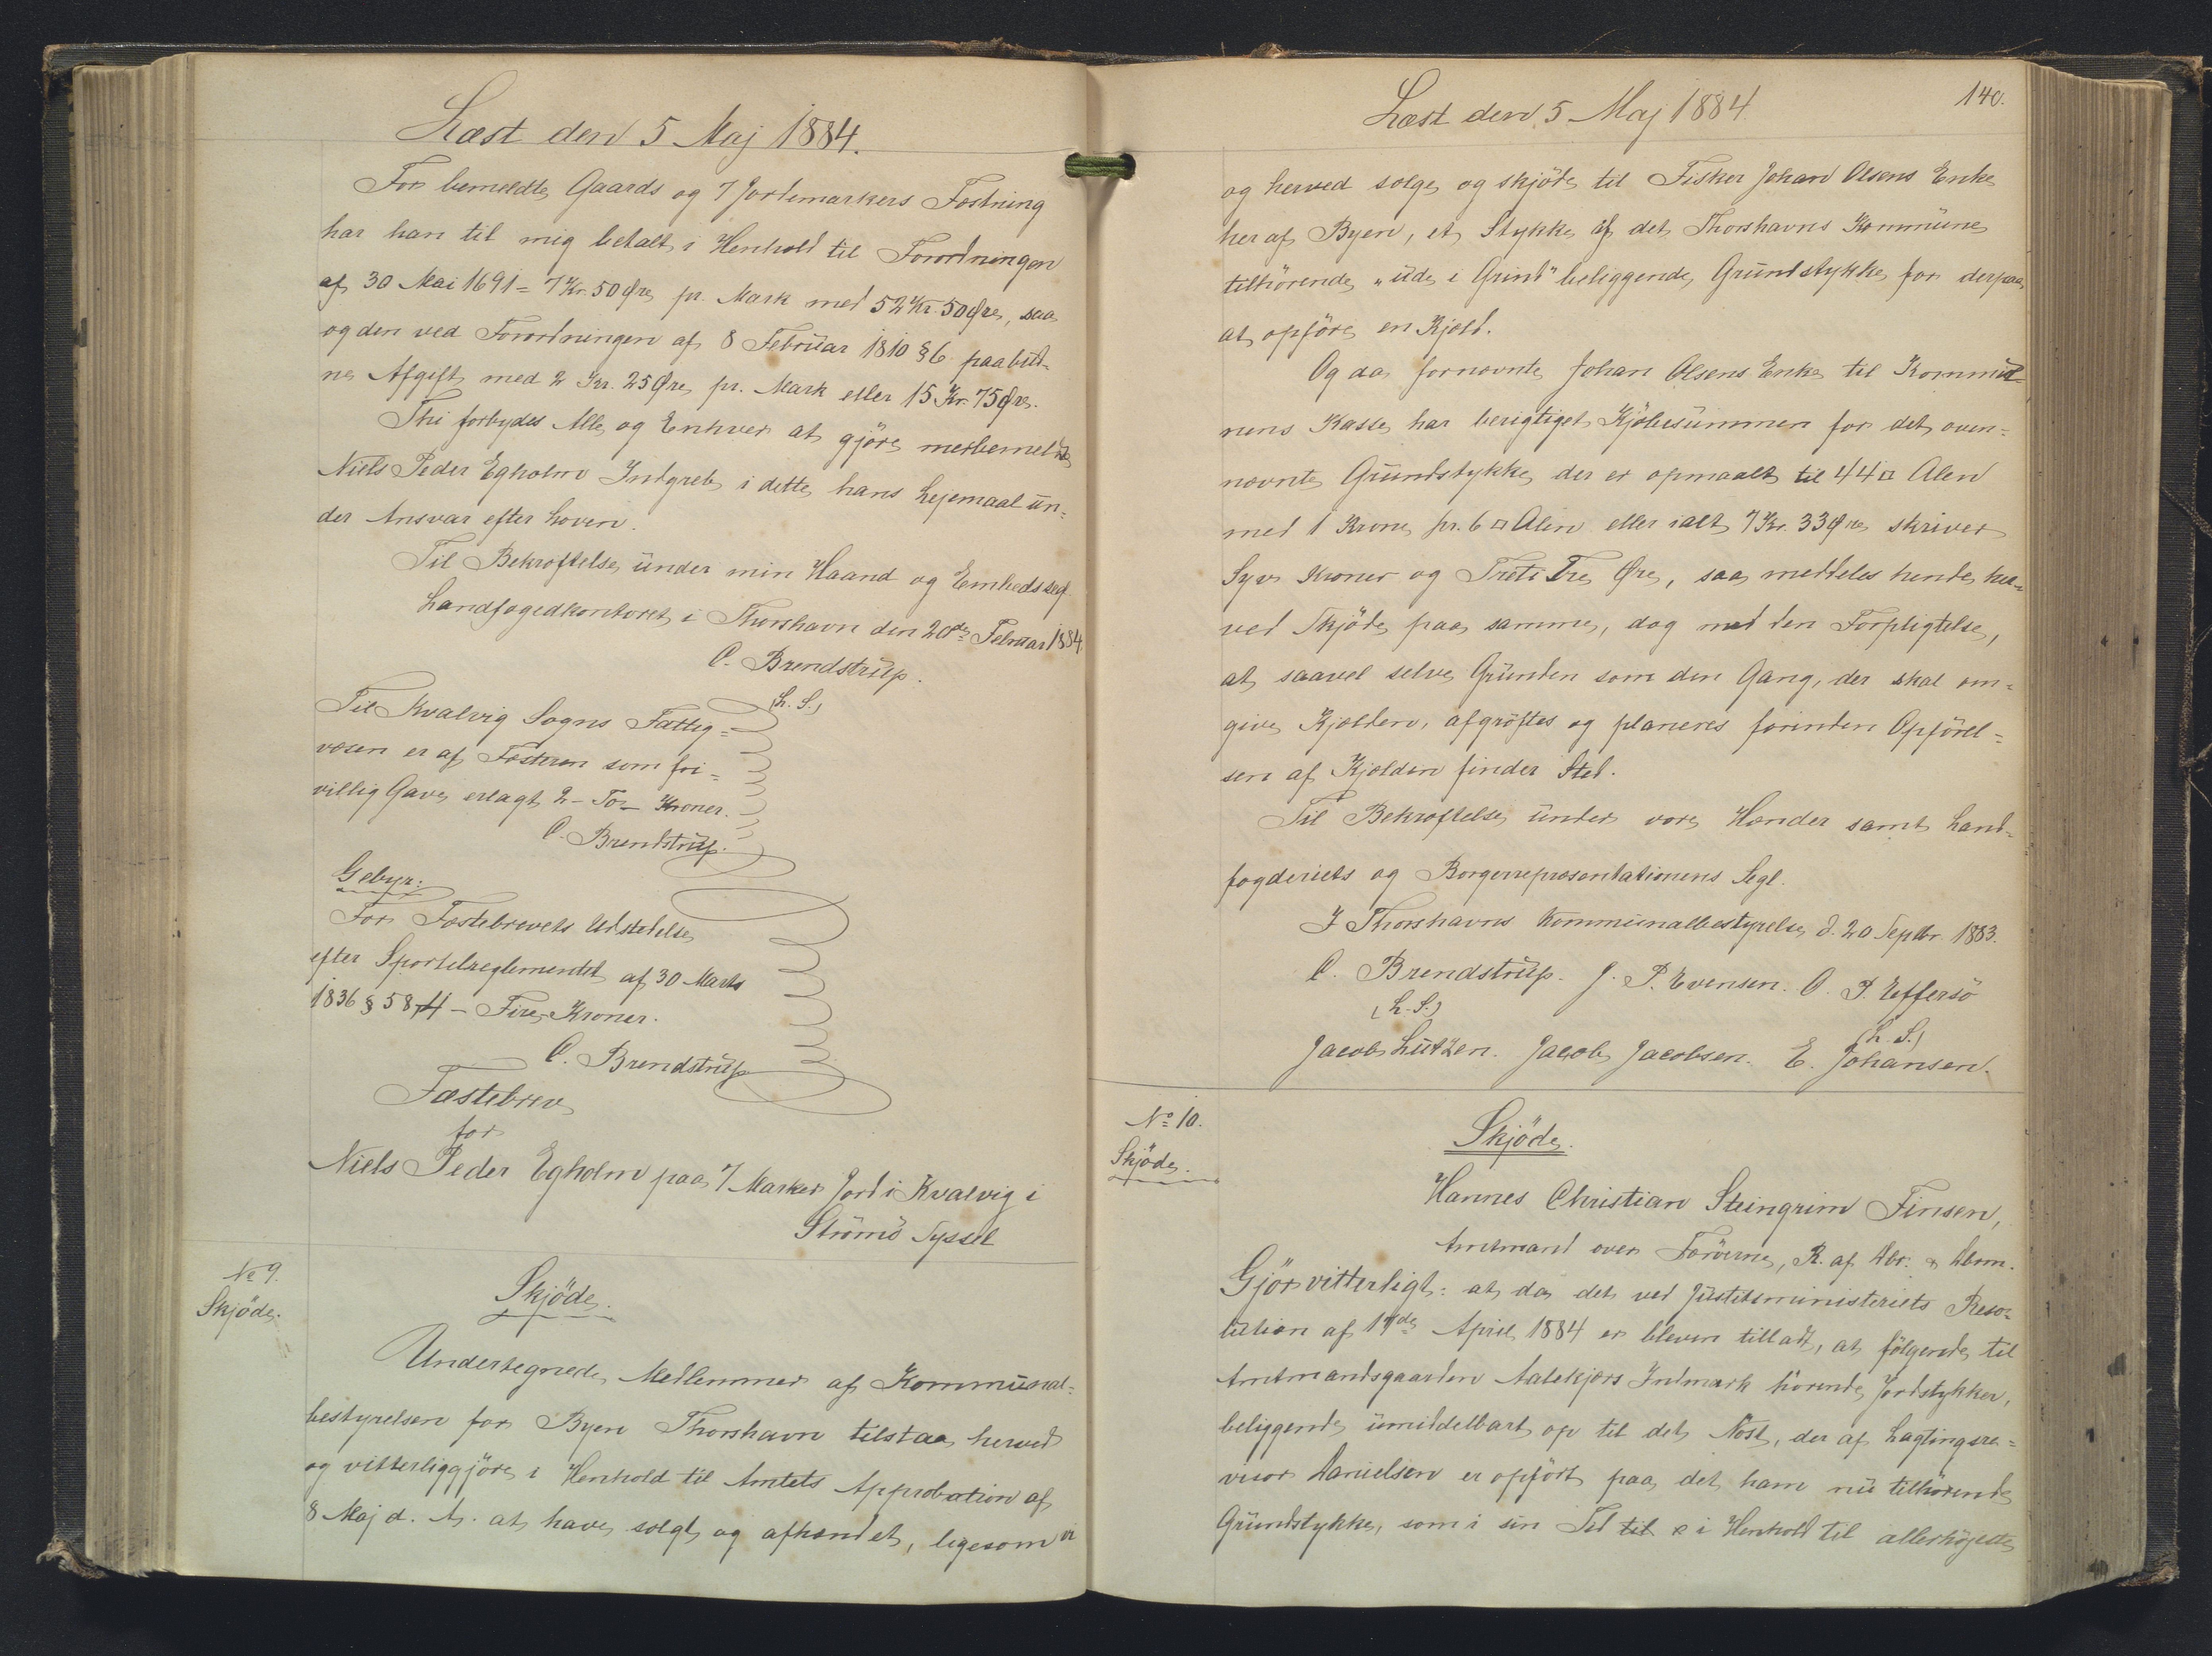 Læst den 5 Maj 1884.
For bemeldte Gaards og 7 Jordemarkers Fæstning
har han til mig betalt i Henhold til Forordningen
af 30 Mai 1691 = 7 Kr. 50 Øre pr. Mark med 52 Kr. 50 Øre, saa
og den ved Forordningen af 8 Februar 1810 § 6 paabud-
ne Afgift med 2 Kr. 25 Øre pr. Mark eller 15 Kr. 75 Øre.
Thi forbydes Alle og Enhver at gjöre merbemeldte
Niels Peder Egholm Indgreb i dette hans Lejemaal un-
der Ansvar efter Loven.
Til Bekræftelse under min Haand og Embedsseg
Landfogedkontoret i Thorshavn den 20de Februar 1884.
C. Brendstrup.
(L. S.)
Til Kvalvig Sogns Fattig-
væsen er af Fæsteren som fri-
villig Gave erlagt 2 - To - Kroner.
C. Brendstrup.
Gebyr:
For Fæstebrevets Udstedelse
efter Sportelreglementet af 30 Marts
1836 § 58 4 - Fire Kroner.
C. Brendstrup
Fæstebrev
for
Niels Peder Egholm paa 7 Marker Jord i Kvalvig i
Strömö Syssel
No 9.
Skjöde.
Skjöde.
Undertegnede Medlemmer af Kommunal-
bestyrelsen for Byen Thorshavn tilstaa herved
og vitterliggjöre i Henhold til Amtets Approbation af
8 Maj d. A. at have solgt og afhændet, ligesom vi
Læst den 5 Maj 1884.
140.
og herved sælge og skjöde til Fisker Johan Olsens Enke
her af Byen, et Stykke af det Thorshavns Kommune
tilhörende „ude i Grind" beliggende Grundstykke for derpaa
at opföre en Kjæld.
Og da fornævnte Johan Olsens Enke til Kommu-
nens Kasse har berigtiget Kjöbesummen for det oven-
nævnte Grundstykke der er opmaalt til 44 □ Alen
med 1 Krone pr. 6 □ Alen eller ialt 7 Kr. 33 Øre skriver
Syv Kroner og Treti Tre Øre, saa meddeles hende her-
ved Skjöde paa samme, dog med den Forpligtelse,
at saavel selve Grunden som den Gang, der skal om-
give Kjælden, afgröftes og planeres forinden Opförel-
sen af Kjælden finder Sted.
Til Bekræftelse under vore Hænder samt Land-
fogderiets og Borgerrepræsentationens Segl.
I Thorshavns Kommunalbestyrelse d. 20 Septbr. 1883.
C. Brendstrup. J. P. Evensen. O. P. Effersö
(L. S.)
(L. S.)
Jacob Lützen. Jacob Jacobsen. E. Johansen.
No 10.
Skjöde.
Skjöde.
Hannes Christian Steingrim Finsen,
Amtmand over Færöerne, R. af Dbr. & Dbrm.
Gjör vitterligt: at da det ved Justitsministeriets Reso-
lution af 17de April 1884 er bleven tilladt, at fölgende til
Amtmandsgaarden Aalekjærs Indmark hörende Jordstykker,
beliggende umiddelbart op til det Nöst, der af Lagtingsre-
visor Danielsen er opfört paa det ham nu tilhörende
Grundstykke, som i sin Tid til i Henhold til allerhöjeste